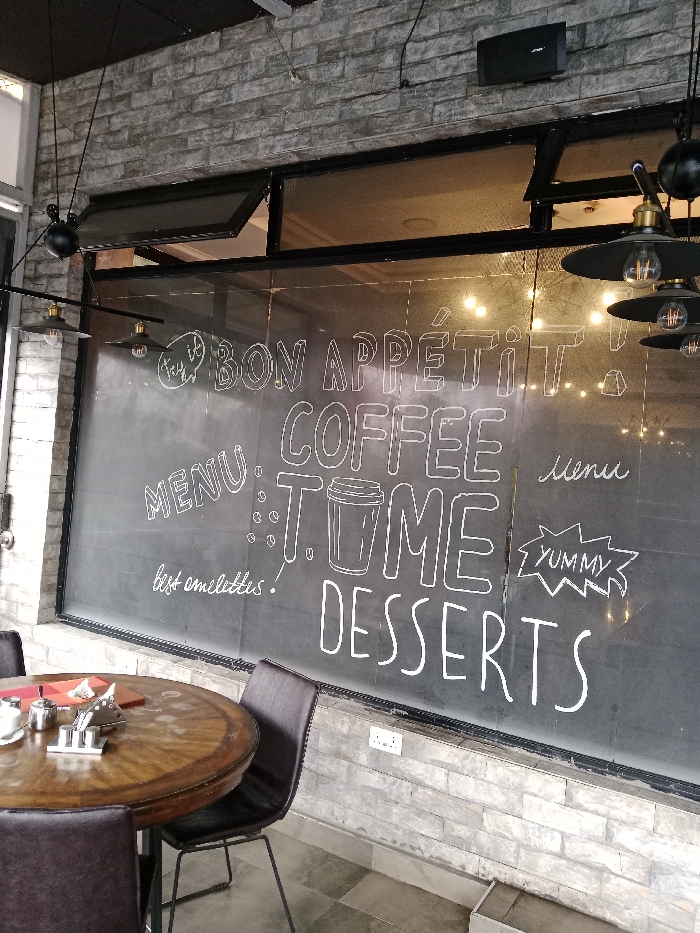 try it
BON APPÉTiT!
COFFEE
MENU
T ME
Menu
YUMMY
best omelettes!
DESSERTS